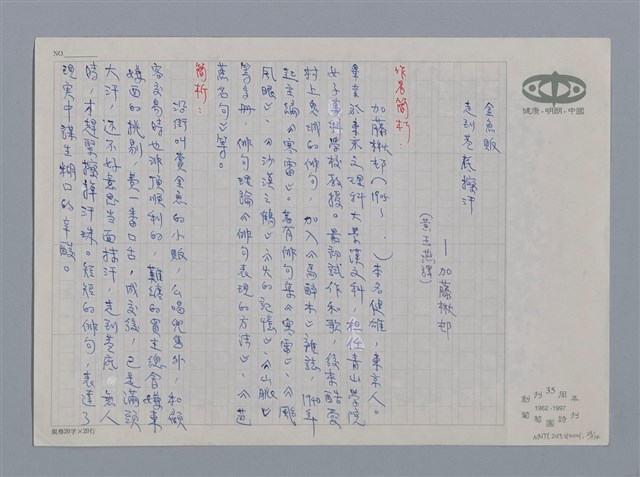 金魚販
走到巷底擦汗
──加藤楸邨
作者簡析：
加藤楸邨(1905～ ．)本名健雄，東京人。
畢業於東京文理科大學漢文科，担任青山學院
女子專科學校教授。最初試作和歌，後來酷愛
村上鬼城的俳句，加入《馬醉木》雜誌，1940年
起主編《寒雷》。著有俳句集《寒雷》、《颱
風眼》、《沙漠之鶴》、《失的記憶》、《山脈》
等多冊，俳句理論《俳句表現的方法》、《芭
蕉名句》等。
簡析：
沿街叫賣金魚的小販，么喝兜售外，和顧
客交易時也非頂順利的，難纏的買主總會嫌東
嫌西的挑剔，費一番口舌，成交後，已是滿頭
大汗，還不好意思當面抹汗，走到巷底，無人
時，才趕緊擦掉汗珠。短短的俳句，表達了
現実中謀生糊口的辛酸。
NO.
稿格20字×20行
健康・明朗・中國
創刊35周年
1962-1997
葡萄園詩刊